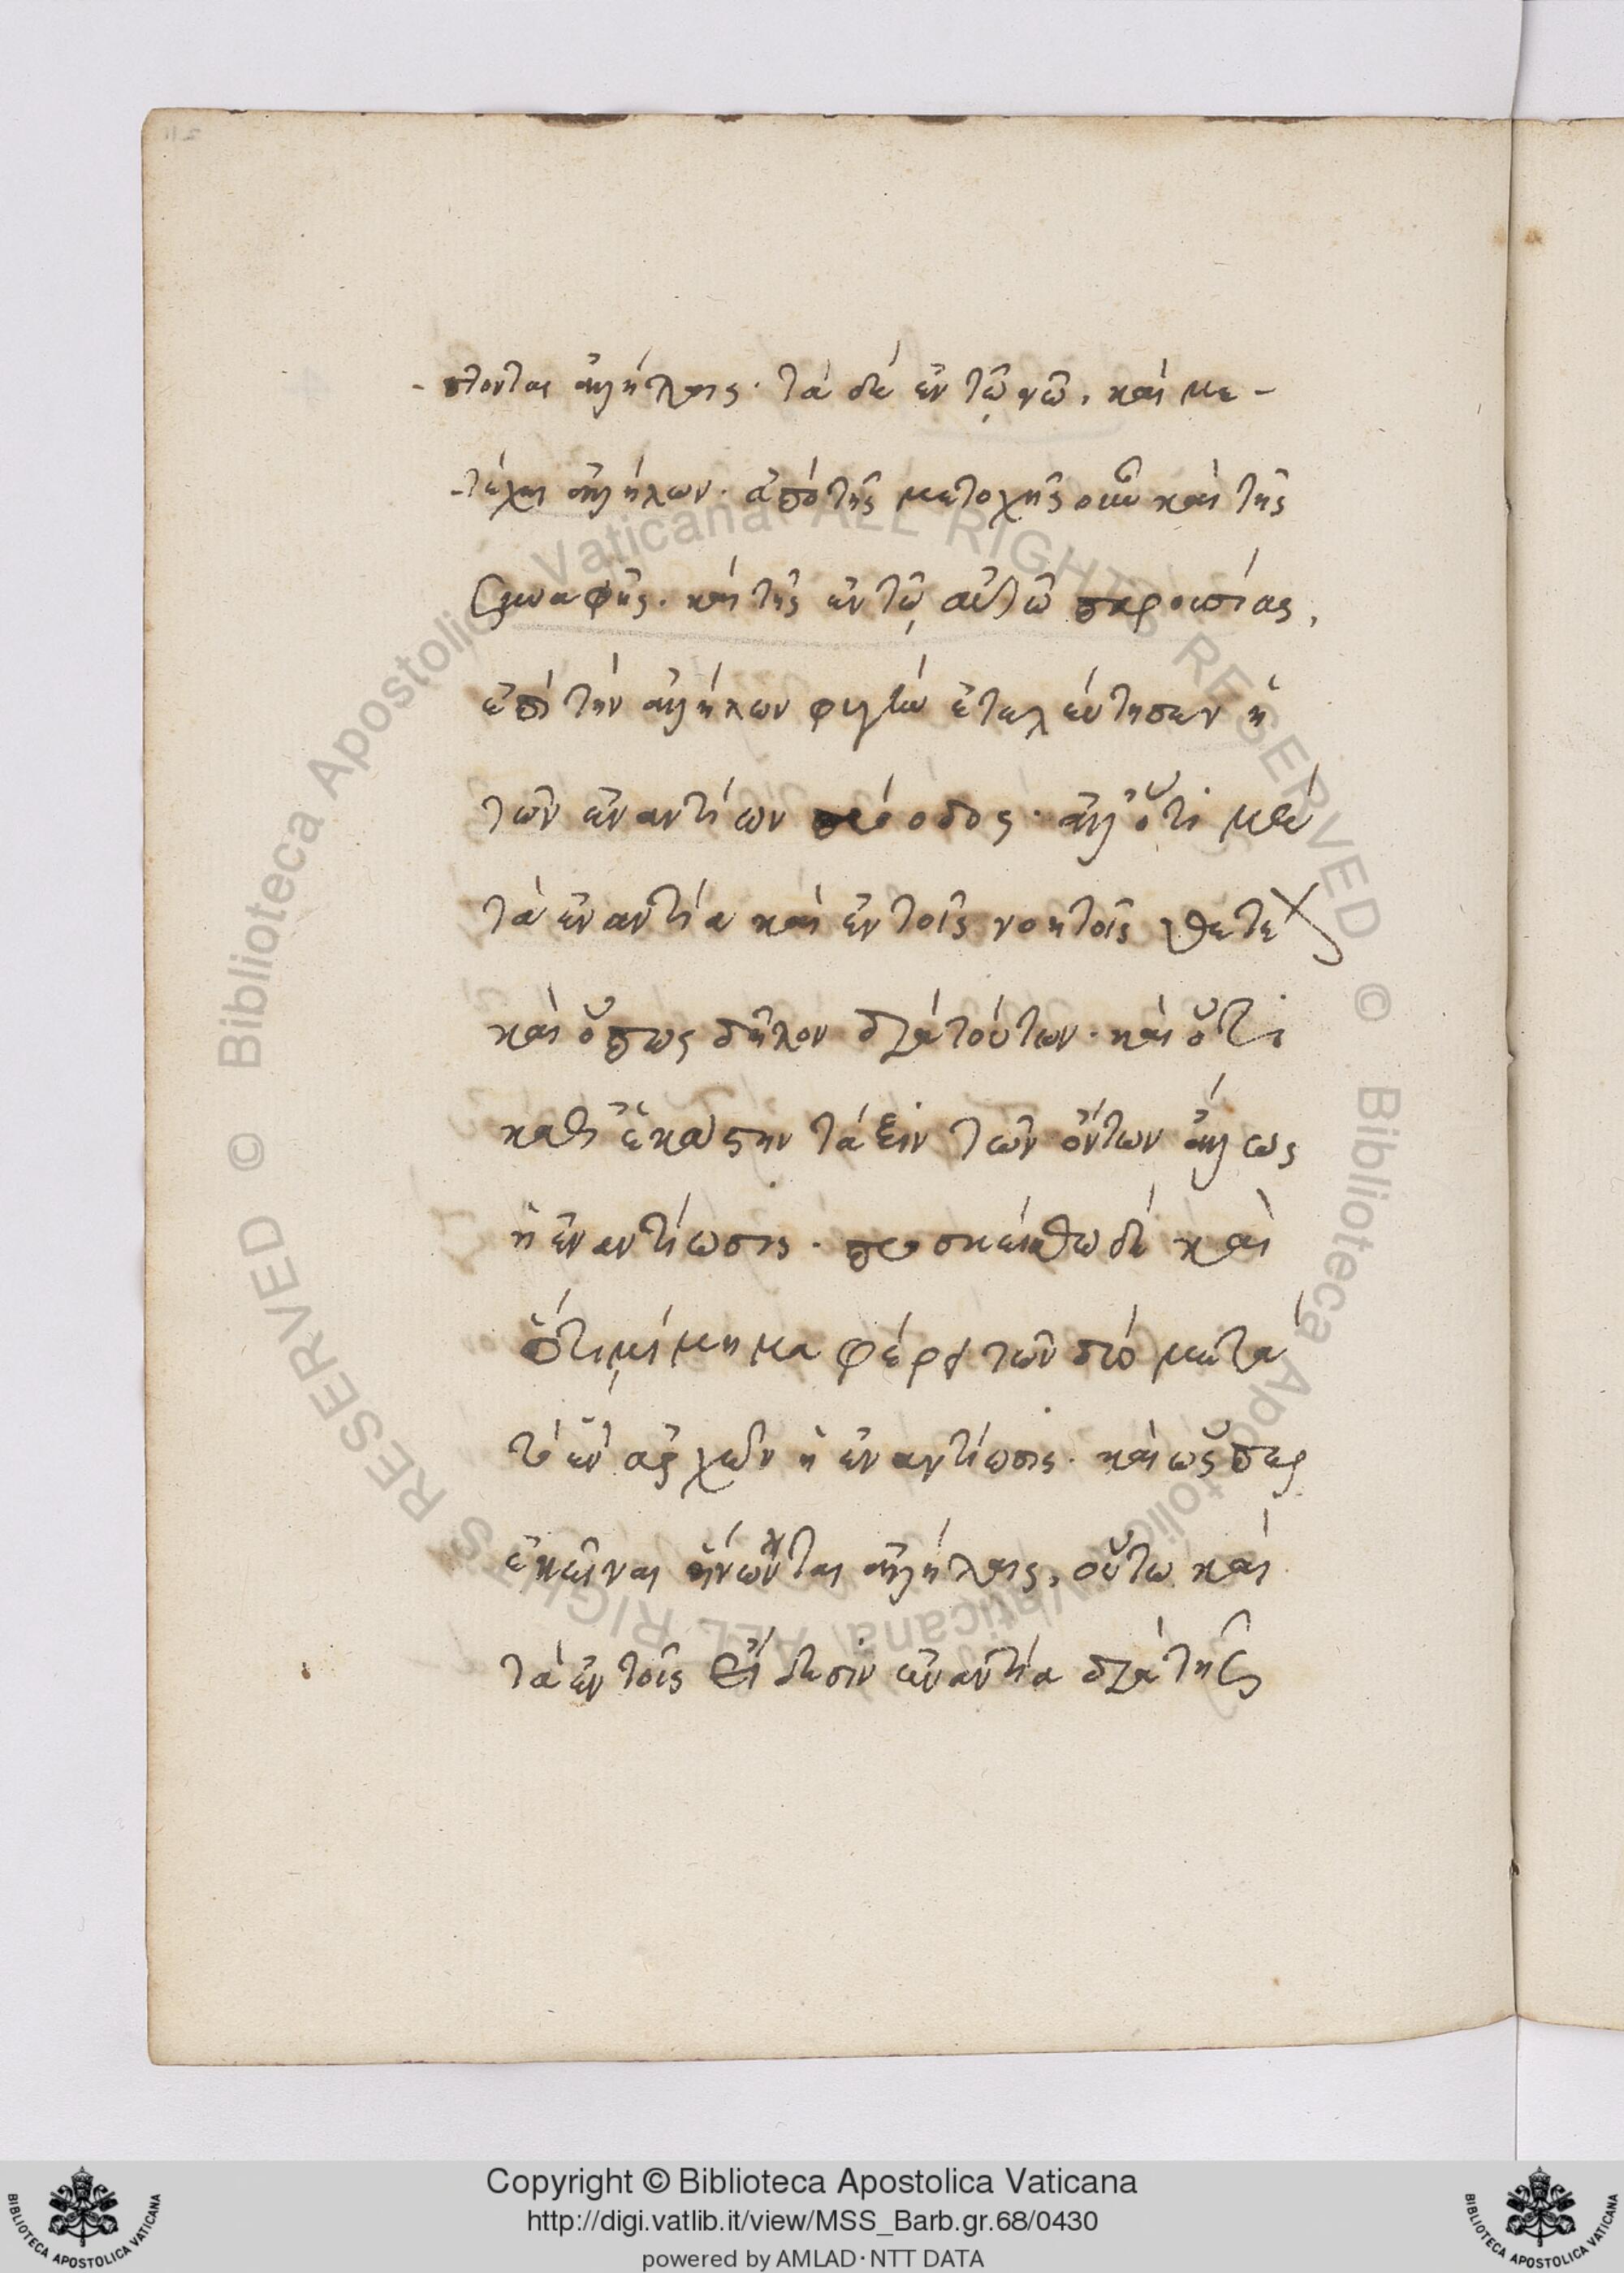 -πτονται ἀλλήλοις· τὰ δὲ ἐν τῷ νῷ, καὶ με-
-τέχει ἀλλήλων· ἀπὸ τῆς μετοχῆς οὖν καὶ τῆς
συναφῆς. καὶ τῆς ἐν τῷ αὐτῶ παρουσίας,
ἐπὶ τὴν ἀλλήλων φυγὴν ἐτελεύτησεν ἡ
τῶν ἐναντίων πρόοδος· ἀλλ' ὅτι μὲν
τὰ ἐναντία καὶ ἐν τοῖς νοητοῖς θετέ
καὶ ὅπως δῆλον διὰ τούτων· καὶ ὅτι
καθ' ἑκάστην τάξιν τῶν ὄντων ἄλλως
ἡ ἐναντίωσις· προσκείσθω δὲ καὶ
ὅτι μίμημα φέρει τῶν δύο μετὰ
τὸ ἓν ἀρχῶν ἡ ἐναντίωσις· καὶ ὥσπερ
ἐκεῖναι ἥνωνται ἀλλήλαις, οὕτω καὶ
τὰ ἐν τοῖς εἴδεσιν ἐναντία διὰ τῆς
Copyright © Biblioteca Apostolica Vaticana
http://digi.vatlib.it/view/MSS_Barb.gr.68/0430
powered by AMLAD·NTT DATA
BIBLIOTECA APOSTOLICA VATICANA
BIBLIOTECA APOSTOLICA VATICANA
© Biblioteca Apostolica Vaticana ALL RIGHTS RESERVED
© Biblioteca Apostolica Vaticana ALL RIGHTS RESERVED